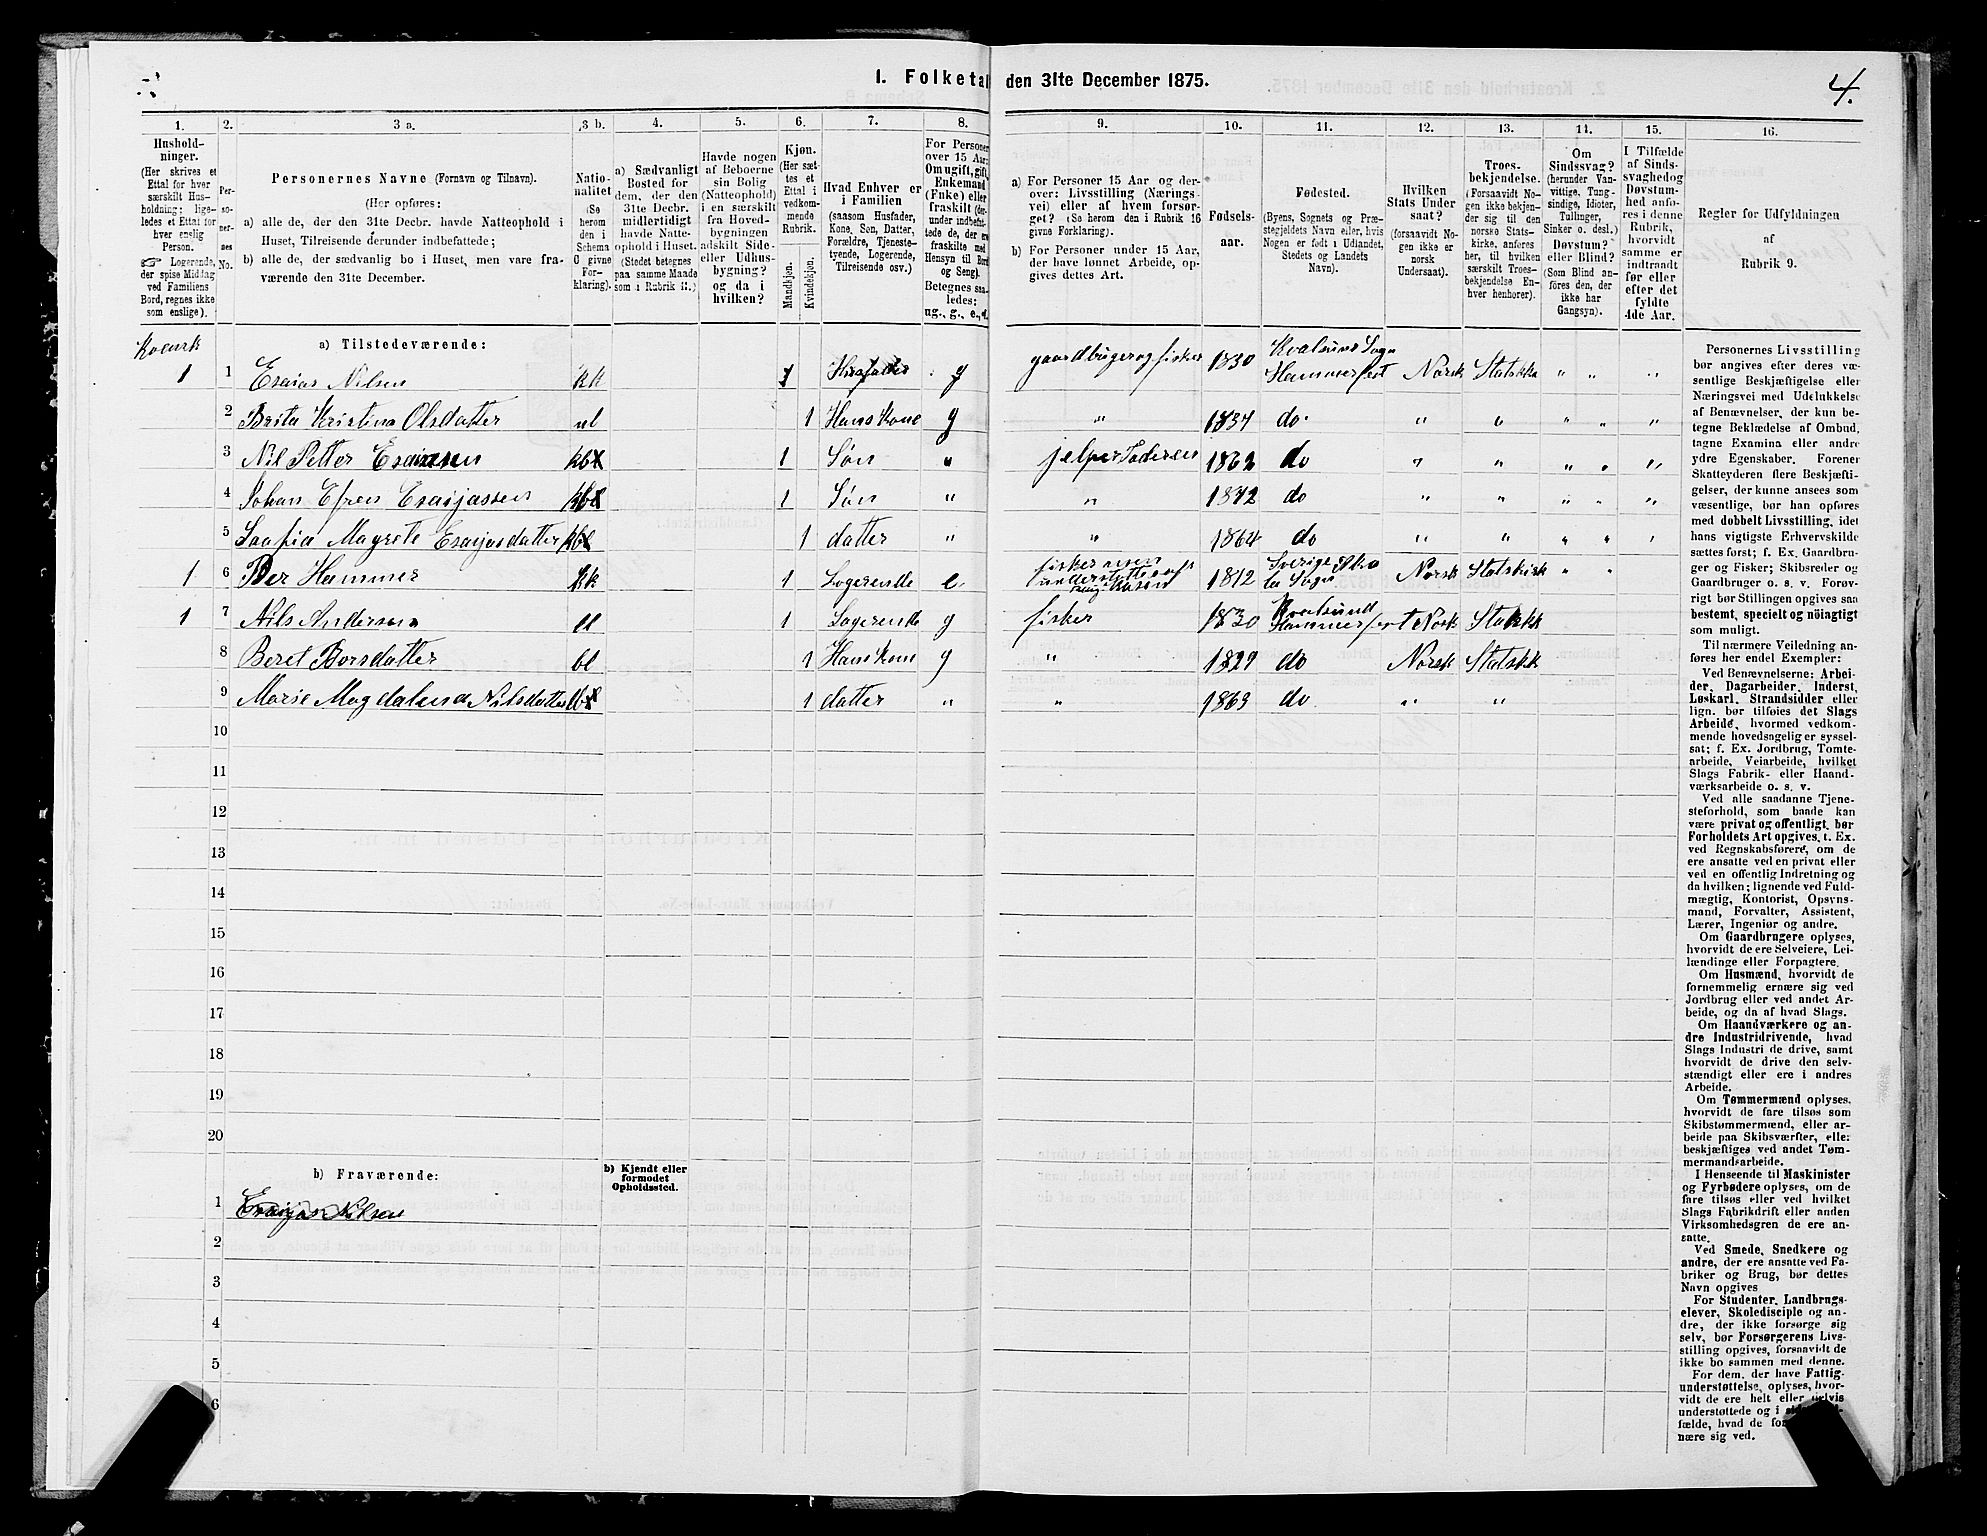 1. Folketal den 31te December 1875.
4.
1. 2. 3 a. 3 b. 4. 5. 6. 7. 8. 9. 10. 11. 12. 13. 14. 15. 16.
Husholdninger.
(Her skrives et Ettal for hver særskilt Husholdning; ligeledes et Ettal for hver enslig Person.
☞ Logerende, der spise Middag ved Familiens Bord, regnes ikke som enslige).
Personernes No.
Personernes Navne (Fornavn og Tilnavn).
(Her opføres:
a) alle de, der den 31te Decbr. havde Natteophold i Huset, Tilreisende derunder indbefattede;
b) alle de, der sædvanlig bo i Huset, men vare fraværende den 31te December.
Nationalitet (Se herom den i Schema O givne Forklaring).
a) Sædvanligt Bosted for dem, der den 31te Decbr. midlertidigt havde Natteophold i Huset. (Stedet betegnes paa samme Maade som i Rubrik 11.)
Havde nogen af Beboerne sin Bolig (Natteophold) i en særskilt fra Hovedbygningen adskilt Side- eller Udhusbygning? og da i hvilken?
Kjøn. (Her sættes et Ettal i vedkommende Rubrik.
Mandkjøn. Kvindekjøn.
Hvad Enhver er i Familien (saasom Husfader, Kone, Søn, Datter, Forældre, Tjenestetyende, Logerende, Tilreisende osv.)
For Personer over 15 Aar: Om ugift, gift, Enkemand (Enke) eller fraskilt (derunder indbefattede de, der ere fraskilte med Hensyn til Bord og Seng). Betegnes saaledes: ug., g., e., f.
a) For Personer 15 Aar og derover: Livsstilling (Næringsvei) eller af hvem forsørget? (Se herom den i Rubrik 16 givne Forklaring).
b) For Personer under 15 Aar, der have lønnet Arbeide, opgives dettes Art.
Fødselsaar.
Fødested. (Byens, Sognets og Præstegjeldets Navn eller, hvis Nogen er født i Udlandet, Stedets og Landets Navn).
Hvilken Stats Undersaat? (forsaavidt Nogen ikke er norsk Undersaat).
Troesbekjendelse. (Forsaavidt Nogen ikke bekjender sig til den norske Statskirke, anføres her, til hvilken særskilt Troesbekjendelse Enhver henhorer).
Om Sindssvag? (herunder Vanvittige, Tungsindige, Idioter, Tullinger, Sinker o. desl.) Døvstum? eller Blind? (Som Blind anføres den, der ikke har Gangsyn).
I Tilfælde af Sindssvaghed og Døvstumhed anføres i denne Rubrik, hvorvidt samme er indtraadt før eller efter det fyldte 4de Aar.
Regler for Udfyldningen af Rubrik 9.
a) Tilstedeværende:
1 1 Esaias Nilsen kk 1 g gaardbruger og fisker 1830 Kvalsund Sogn Hammerfest Norsk Statskk " " "
2 Brita Kristina Olsdatter nl 1 Hans Kone g " 1834 do " " " " "
3 Nil Petter 1 Søn " 1862 do " " " " "
4 Johan Efren Esaijassen 1 Søn " " 1872 do " " " " "
5 Saafia Magrete Esaijasdatter 1 datter " " 1864 do " " " " "
1 6 Per Hammer kk 1 Logerende e 1812 Sverige Norsk Statskirk " "
1 7 Nils Andersen 1 Logerende g fisker 1830 Kvalsund Hammerfest Norsk Statskk
8 Beret Borsdatter bl 1 Hans Kone g " 1829 do Norsk Statskk
9 Marie Magdalena Nilsdatter 1 datter " " 1863 do " "
10
11
12
13
14
15
16
17
18
19
20
b) Fraværende:
b) Kjendt eller formodet Opholdssted.
1 Esaijas Nilsen
2
3
4
5
6
Personernes Livsstilling
bør angives efter deres væ-
sentlige Beskjæftigelse eller
Næringsvei med Udelukkelse
af Benævnelser, der kun be-
tegne Beklædelse af Ombud,
tagne Examina eller andre
ydre Egenskaber. Forener
Skatteyderen flere Beskjæfti-
gelser, der kunne ansees som
væsentlige, bør han opføres
med dobbelt Livsstilling, idet
hans vigtigste Erhvervskilde
sættes først; f. Ex. Gaardbru-
ger og Fisker; Skibsreder og
Gaardbruger o. s. v. Forøv-
rigt bør Stillingen opgives saa
bestemt, specielt og nöiagtigt
som muligt.
Til nærmere Veiledning an-
føres her endel Exempler:
Ved Benævnelserne: Arbei-
der, Dagarbeider, Inderst,
Løskarl, Strandsidder eller
lign. bør tilføies det Slags
Arbeide, hvormed vedkom-
mende hovedsagelig er syssel-
sat; f. Ex. Jordbrug, Tomte-
arbeide, Veiarbeide, hvilket
Slags Fabrik- eller Haand-
værksarbeide o. s. v.
Ved alle saadanne Tjene-
steforhold, som baade kan
være privat og offentligt, bør
Forholdets Art opgives, t. Ex.
ved Regnskabsførere, om de
ere ansatte ved en privat eller
ved en offentlig Indretning og
da hvilken; lignende ved Fuld-
mægtig, Kontorist, Opsyns-
mand, Forvalter, Assistent,
Lærer, Ingeniør og andre.
Om Gaardbrugere oplyses,
hvorvidt de ere Selveiere, Lei-
lændinge eller Forpagtere.
Om Husmænd, hvorvidt de
fornemmelig ernære sig ved
Jordbrug eller ved andet Ar-
beide, og da af hvad Slags.
Om Haandværkere og an-
dre Industridrivende, hvad
Slags Industri de drive, samt
hvorvidt de drive den selv-
stændigt eller ere i andres
Arbeide.
Om Tømmermænd oplyses,
hvorvidt de fare tilsøs som
Skibstømmermænd, eller ar-
beide paa Skibsværfter, eller
beskjæftiges ved andet Tøm-
mermandsarbeide.
I Henseende til Maskinister
og Fyrbødere oplyses, om de
fare tilsøs eller ved hvilket
Slags Fabrikdrift eller anden
Virksomhedsgren de ere an-
satte.
Ved Smede, Snedkere og
andre, der ere ansatte ved Fa-
briker og Brug, bør dettes
Navn opgives
For Studenter, Landbrugs-
elever, Skoledisciple og an-
dre, der ikke forsørge sig
selv, bør Forsørgerens Livs-
stilling opgives, forsaavidt de
ikke bo sammen med denne.
For dem, der have Fattig-
understøttelse, oplyses, hvor-
vidt de ere helt eller delvis
understøttede og i
fælde, hvad de
nære sig ved.